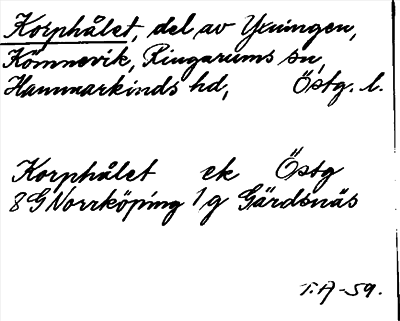 Korphålet, del av Yxningen,
Kömnevik, Ringarums sn,
Hammarkinds hd, Östg. l.
Korphålet ek Östg
8G Norrköping 1g Gärdsnäs
T.A-59.